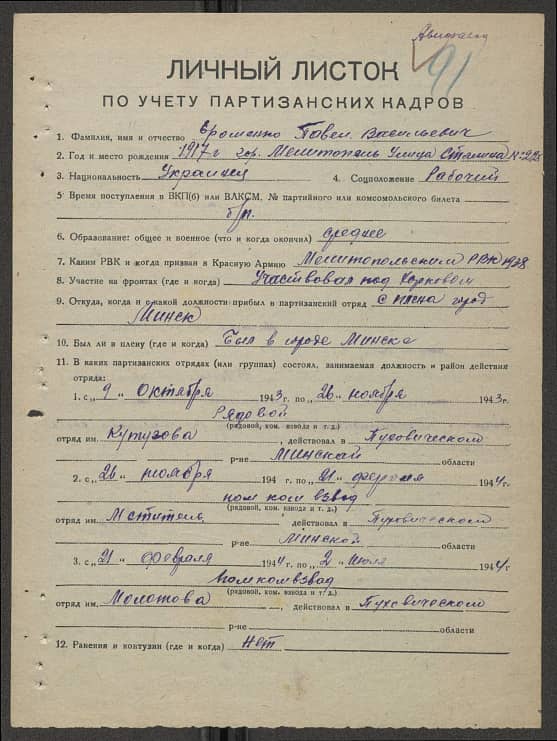 91
ЛИЧНЫЙ ЛИСТОК
ПО УЧЕТУ ПАРТИЗАНСКИХ КАДРОВ
1. Фамилия, имя и отчество Ерошенко Павел Васильевич
2. Год и место рождения 1917 г гор. Мелитополь Улица Сталина № 228
3. Национальность Украинец 4. Соцположение Рабочий
5. Время поступления в ВКП(б) или ВЛКСМ, № партийного или комсомольского билета
б/п.
6. Образование: общее и военное (что и когда окончил) среднее
7. Каким РВК и когда призван в Красную Армию Мелитопольским РВК 1938
8. Участие на фронтах (где и когда) Участвовал под Харковом
9. Откуда, когда и в какой должности прибыл в партизанский отряд с плена город
Минск
10. Был ли в плену (где и когда) Был в городе Минске
11. В каких партизанских отрядах (или группах) состоял, занимаемая должность и район действия
отряда:
1. с „9" Октября 1943 г. по „26" ноября 1943 г.
Рядовой
(рядовой, ком. взвода и т. д.)
отряд им. Кутузова, действовал в Пуховическом
р-не Минской области
2. с „26" ноября 194 г. по „21" февраля 1944 г.
пом ком взвод
(рядовой, ком. взвода и т. д.)
отряд им. Мститель, действовал в Пуховическом
р-не Минской области
3. с „21" февраля 1944 г. по „2" Июля 1944 г
Помкомвзвод
(рядовой, ком. взвода и т. д.)
отряд им. Молотова, действовал в Пуховическом
р-не области
12. Ранения и контузии (где и когда) Нет